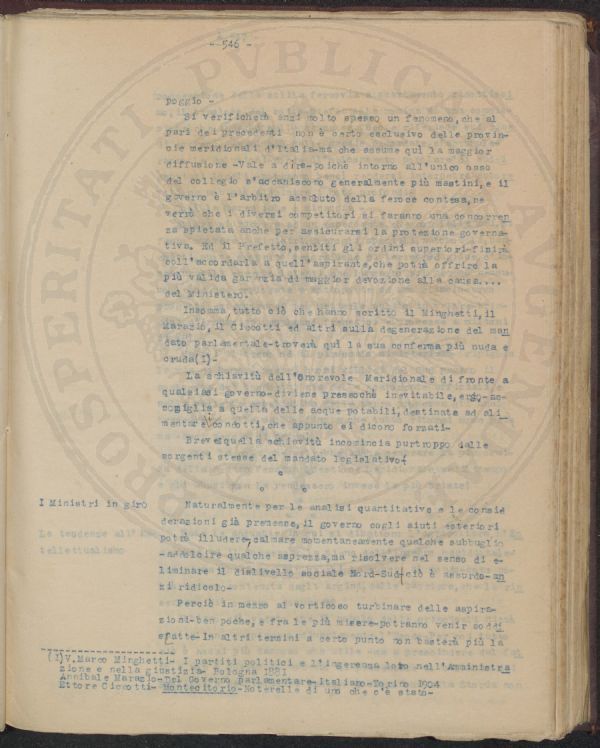 - 546 -
poggio -
Si verificherà anzi molto spesso un fenomeno, che al
pari dei precedenti non è certo esclusivo delle provin-
cie meridionali d'Italia-ma che assume quì la maggior
diffusione -Vale a dire-poichè intorno all'unico osso
del collegio s'accaniscono generalmente più mastini, e il
governo è l'arbitro assoluto della feroce contesa, ne
verrà che i diversi competitori si faranno una concorren
za spietata anche per assicurarsi la protezione governa-
tiva. Ed il Prefetto, sentiti gli ordini superiori-finirà
coll'accordarla a quell'aspirante, che potrà offrire la
più valida garanzia di maggior devozione alla causa....
del Ministero.
Insomma, tutto ciò che hanno scritto il Minghetti, il
Marazio, il Ciccotti ed altri sulla degenerazione del man
dato parlamentale-troverà quì la sua conferma più nuda e
cruda(I)-
La schiavitù dell'Onorevole Meridionale di fronte a
qualsiasi governo-diviene pressochè inevitabile, ess-
somiglia a quella delle acque potabili, destinate ad ali_
mentare condotti, che appunto si dicono forzati-
Breve:quella schiavitù incomincia purtroppo dalle
sorgenti stesse del mandato legislativo.
° ° °
I Ministri in giro
Naturalmente per le analisi quantitative e le consid
derazioni già premesse, il governo cogli aiuti esteriori
potrà illudere, calmare momentaneamente qualche subbuglio
-addolcire qualche asprezza, ma risolvere nel senso di e-
liminare il dislivello sociale Nord-Sud-ciò è assurdo-an
zi ridicolo-
Perciò in mezzo al vorticoso turbinare delle aspira-
zioni-ben poche, e fra le più misere-potranno venir soddi
sfatte-In altri termini a certo punto non basterà più la
(I)V.Marco Minghetti- I partiti politici e l'ingerenza loro nell'Amministra
zione e nella giustizia- Bologna 1881
Annibale Marazio-Del Governo Parlamentare Italiano-Torino 1904
Ettore Ciccotti- Montecitorio-Noterelle di uno che c'è stato-
PROSPERITATI PVBLICAE AVGENDAE